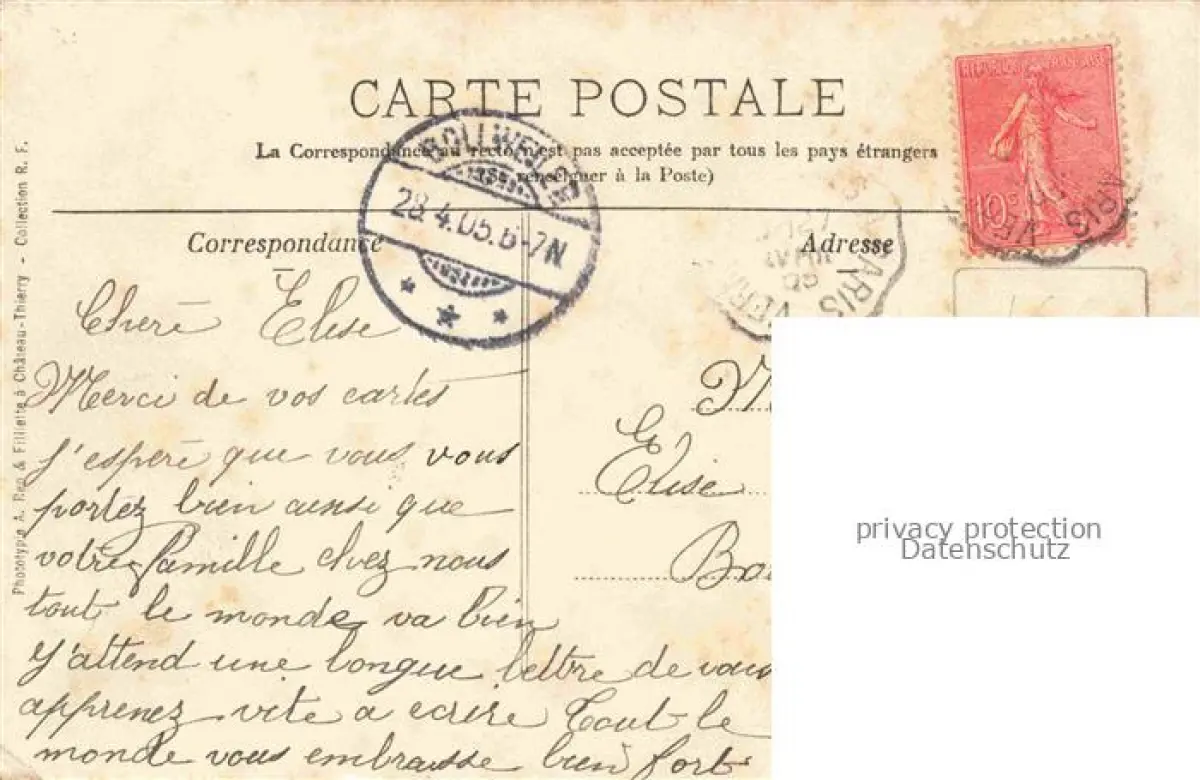 CARTE POSTALE
La Correspondance au recto n'est pas acceptée par tous les pays étrangers
(Se renseigner à la Poste)
Correspondance
Adresse
REPUBLIQUE FRANÇAISE
10c
BOLLWEILER
28.4.05.6-7N
PARIS
Phototypie A. Rep & Filliette à Château-Thierry - Collection R. F.
Cheré Elise
Merci de vos cartes
j'esperé que vous vous
portez bien ainsi que
votre famille chez nous
tout le monde va bien
J'attend une longue lettre de vous
apprenez vite a ecrire Tout le
monde vous embrasse bien fort
Elise
privacy protection
Datenschutz